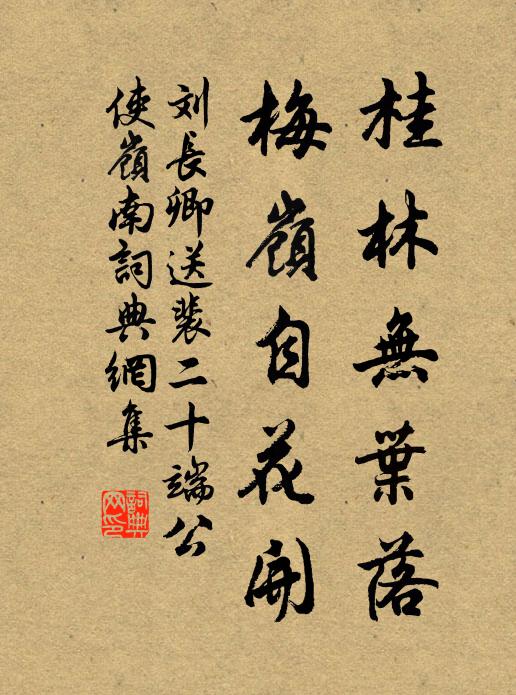 桂林無葉落
梅嶺自花開
刘長卿送裴二十端公
使嶺南詞典網集
詞典网印